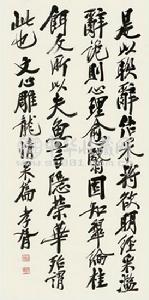 是以聯辭結采將欲明經采濫
辭詭則心理愈翳固知翠綸桂
餌反所以失魚言隱榮華殆謂
此也 文心雕龍情采篇 孝胥